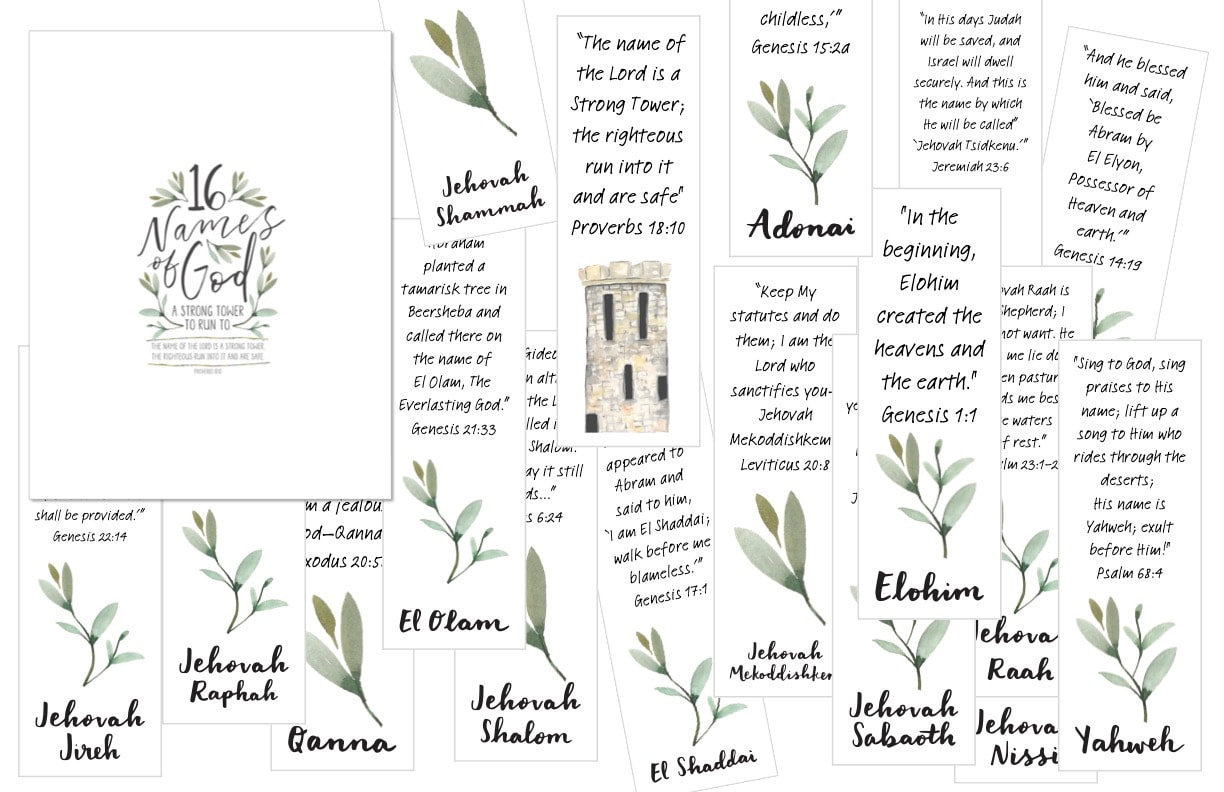 16
Names
of God
A STRONG TOWER
TO RUN TO
THE NAME OF THE LORD IS A STRONG TOWER,
THE RIGHTEOUS RUN INTO IT AND ARE SAFE
Jehovah
Shammah
"The name of
the Lord is a
Strong Tower;
the righteous
run into it
and are safe"
Proverbs 18:10
childless,'"
Genesis 15:2a
Adonai
"In His days Judah
will be saved, and
Israel will dwell
securely. And this is
the name by which
He will be called"
'Jehovah Tsidkenu.'"
Jeremiah 23:6
"And he blessed
him and said,
'Blessed be
Abram by
El Elyon,
Possessor of
Heaven and
earth.'"
Genesis 14:19
planted a
tamarisk tree in
Beersheba and
called there on
the name of
El Olam, The
Everlasting God."
Genesis 21:33
El Olam
"Keep My
statutes and do
them; I am the
Lord who
sanctifies you-
Jehovah
Mekoddishkem
Leviticus 20:8
Jehovah
"In the
beginning,
Elohim
created the
heavens and
the earth."
Genesis 1:1
Elohim
Raah is
I
not want. He
me lie
waters
of rest."
23:1-2
Jehova
Raah
"Sing to God, sing
praises to His
name; lift up a
song to Him who
rides through the
deserts;
His name is
Yahweh; exult
before Him!"
Psalm 68:4
Yahweh
shall be provided.'"
Genesis 22:14
Jehovah
Jireh
Jehovah
Raphah
a jealou
Qanna
20:5
Qanna
the
Shalom.
it still
6:24
Jehovah
Shalom
appeared to
Abram and
said to him,
'I am El Shaddai;
walk before me
blameless.'"
Genesis 17:1
El Shaddai
Jehovah
Sabaoth
Jehova
Nissi